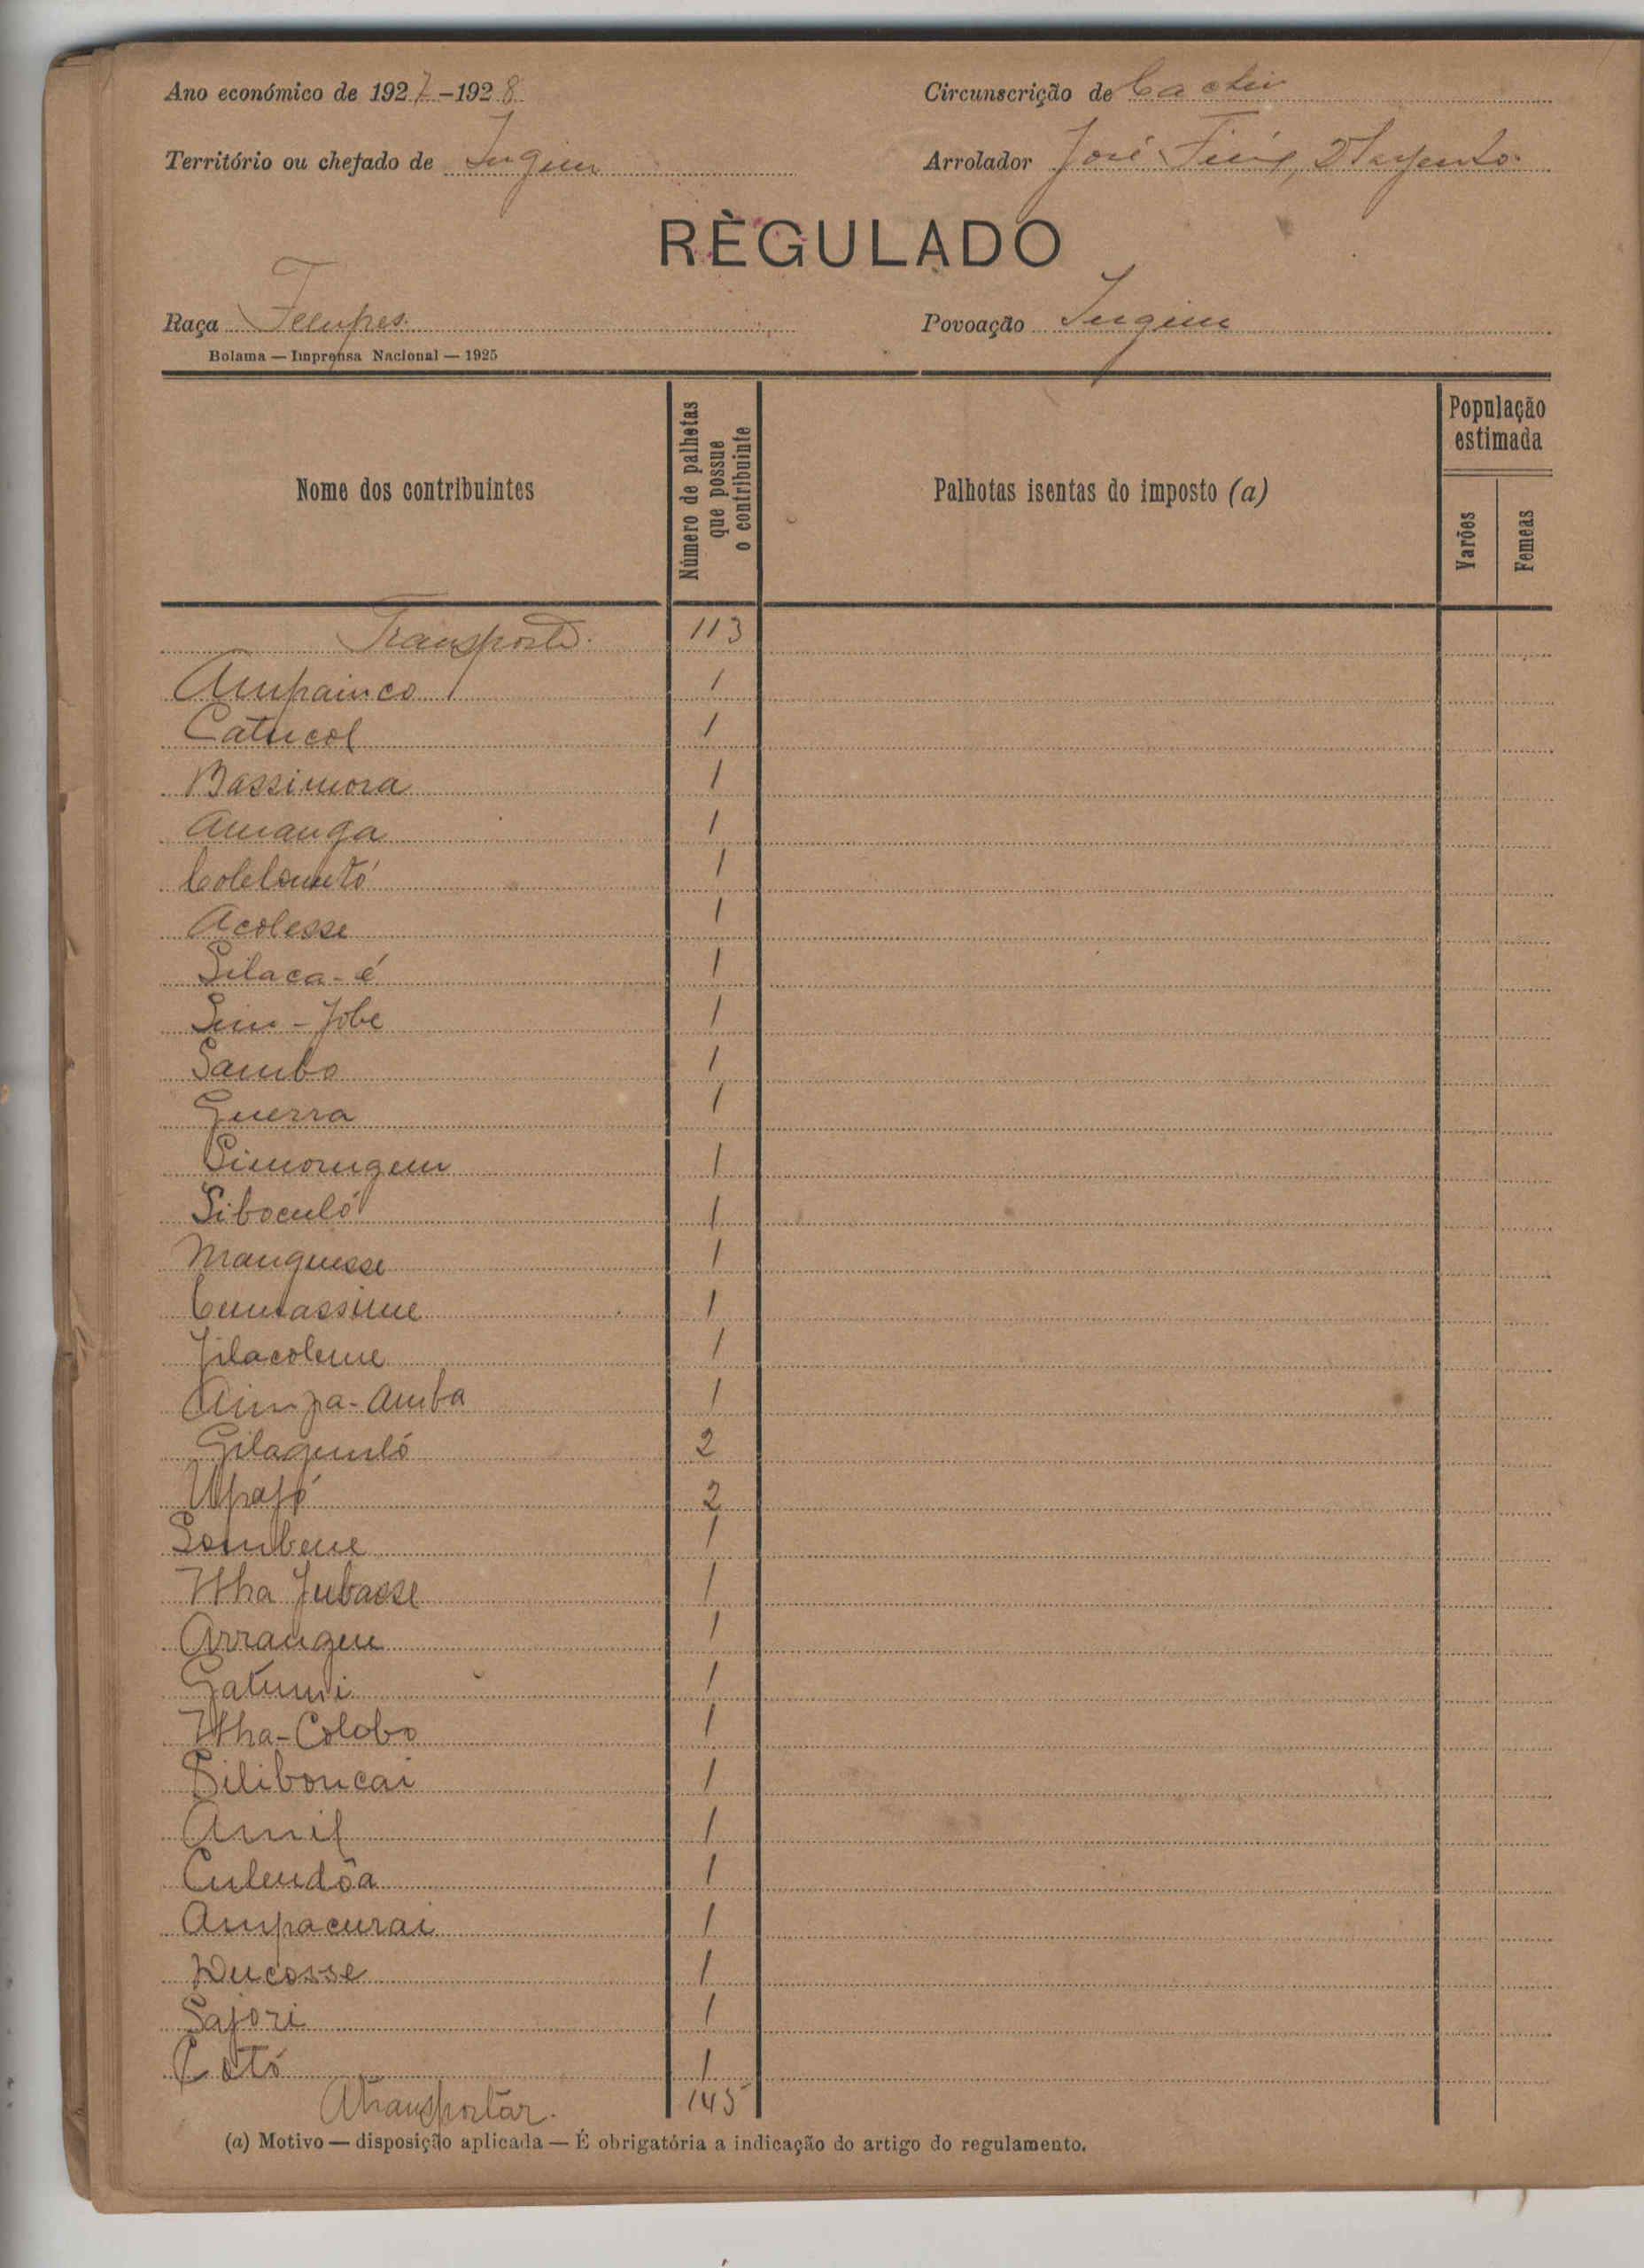 Ano económico de 1927-1928
Circunscrição de Cacheu
Território ou chefado de Jugim
Arrolador José 2º Sargento
RÈGULADO
Raça Felupes
Povoação Jugim
Bolama — Imprensa Nacional — 1925
Nome dos contribuintes
Número de palhotas que possue o contribuinte
Palhotas isentas do imposto (a)
População estimada
Varões
Femeas
Transporte 113
Ampainco 1
Catucol 1
Bassimora 1
Amanga 1
1
Acolesse 1
Silaca-é 1
Sim-Jobe 1
Sambo 1
Guerra 1
Simorugem 1
Siboculó 1
Manguesse 1
Cumassime 1
Jilacoleme 1
Ainpa-Amba 1
Gilaguuló 2
Upafó 2
Sombene 1
Itha Jubasse 1
Arrangue 1
Gatumi 1
Itha-Colobo 1
Siliboucai 1
Amil 1
Culendôa 1
Ampacurai 1
Ducosse 1
Sajori 1
Cotó 1
A transportar 145
(a) Motivo — disposição aplicada — É obrigatória a indicação do artigo do regulamento.